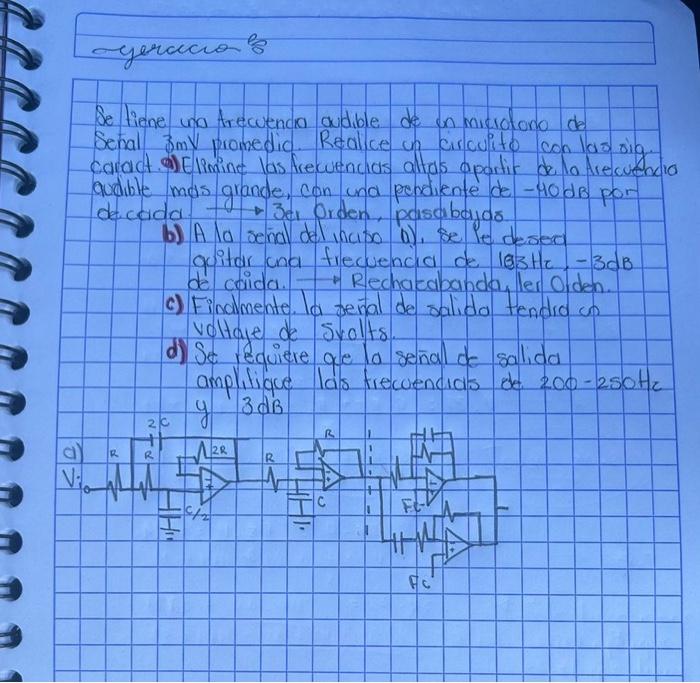 ejercicio
Se tiene una frecuencia audible de un microfono de
Señal 3mV promedio. Realice un circuito con las sig.
caract. a) Elimine las frecuencias altas apartir de la frecuencia
audible mas grande, con una pendiente de -40dB por
decada → 3er Orden, pasabajas.
b) A la señal del inciso a), se le desea
quitar una frecuencia de 183Hz, -3dB
de caida. → Rechazabanda, 1er Orden.
c) Finalmente, la señal de salida tendra un
voltaje de 5volts.
d) Se requiere qe la señal de salida
amplifique las frecuencias de 200-250Hz
y 3dB
2C
R
a) R R 2R R
Vi
C/2 C
FC
FC